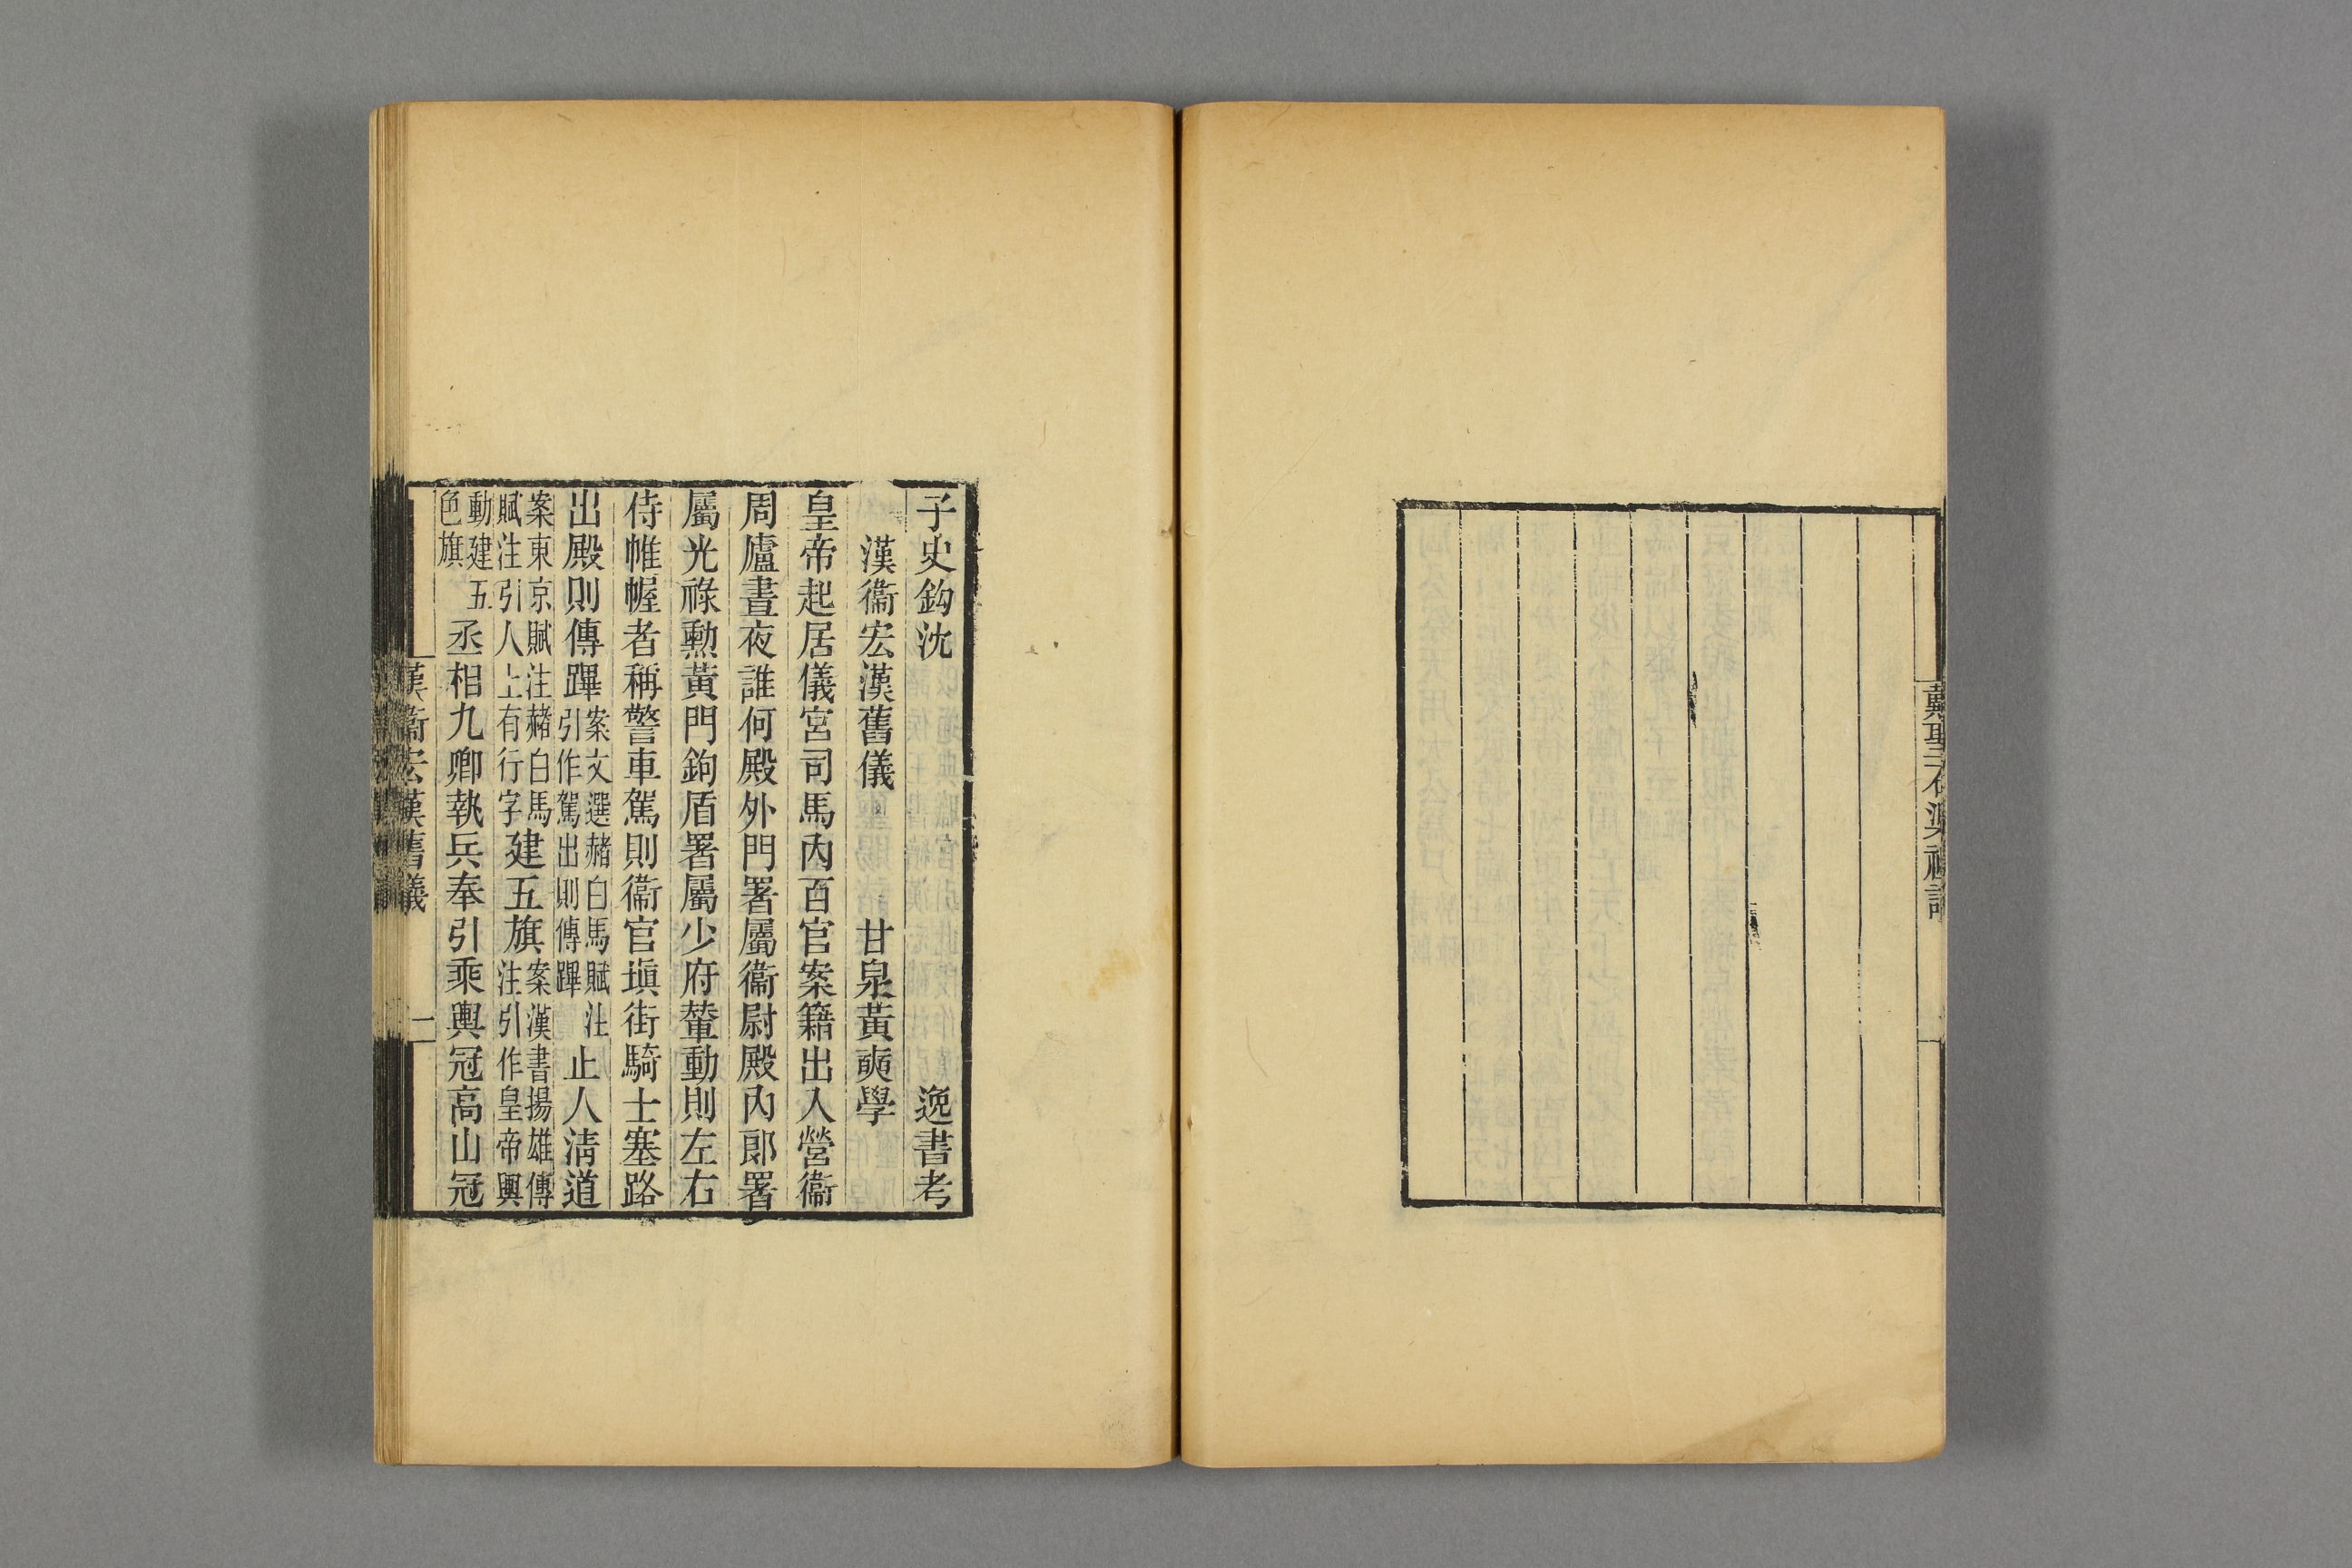 戴聖石渠禮論
子史鈎沈 逸書考
漢衞宏漢舊儀 甘泉黃奭學
皇帝起居儀宮司馬內百官案籍出入營衞
周廬晝夜誰何殿外門署屬衞尉殿內郎署
屬光祿勳黃門鉤盾署屬少府輦動則左右
侍帷幄者稱警車駕則衞官塡街騎士塞路
出殿則傳蹕案文選赭白馬賦注引作駕出則傳蹕止人淸道
案東京賦注赭白馬賦注引人上有行字建五旗案漢書揚雄傳注引作皇帝輿
動建五色旗丞相九卿執兵奉引乘輿冠高山冠
漢衞宏漢舊儀 一